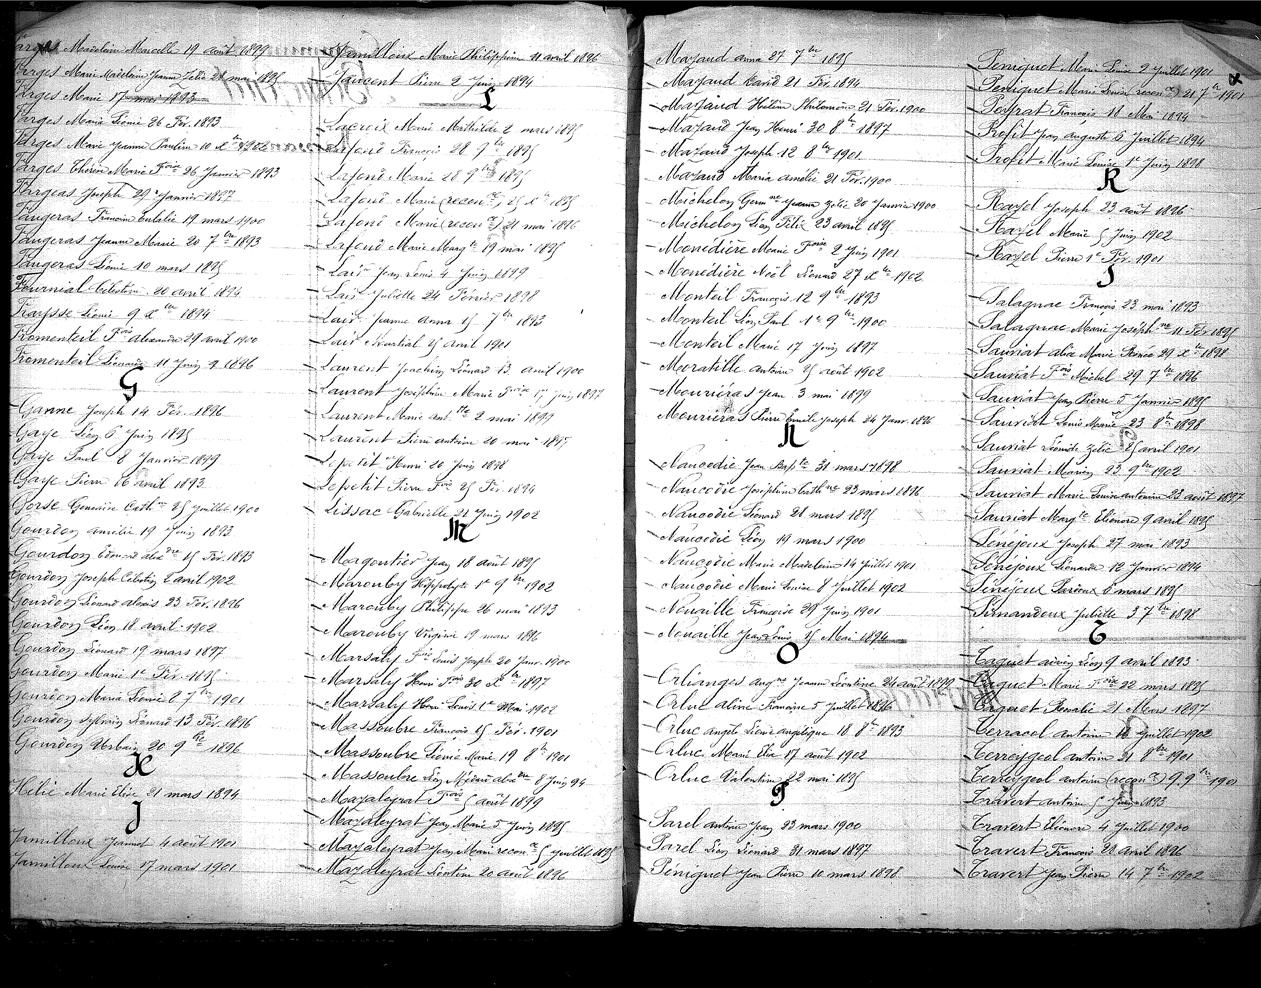 Farges Madeleine Marcelle 19 août 1899
Farges Marie Madeleine Jeanne Zélie 28 mai 1895
Farges Marie 17 mai 1893
Farges Marie Léonie 26 Fév. 1893
Farges Marie Jeanne Pauline 10 Xbre 1902
Farges Thérèse Marie Foise 26 Janvier 1893
Fargeas Joseph 29 Janvier 1897
Faugeras Françoise Eulalie 19 mars 1900
Faugeras Jeanne Marie 20 7bre 1893
Faugeras Léonie 10 mars 1895
Fournial Célestin 20 avril 1894
Fraysse Léonie 9 Xbre 1894
Fromenteil Fois Alexandre 29 avril 1900
Fromenteil Léonarde 11 Juin 1896
G
Ganne Joseph 14 Fév. 1896
Gaye Léon 6 Juin 1895
Gaye Paul 8 Janvier 1899
Gaye Pierre 16 avril 1893
Gorse Geneviève Cathne 25 Juillet 1900
Gourdon Amélie 19 Juin 1893
Gourdon Edouard Alexdre 15 Fév. 1893
Gourdon Joseph Célestin 2 avril 1902
Gourdon Léonard Alexis 23 Fév. 1896
Gourdon Léon 18 avril 1902
Gourdon Léonard 19 mars 1897
Gourdon Marie 1er Fév. 1895
Gourdon Maria Léonie 8 7bre 1901
Gourdon Sylvain Léonard 13 Fév. 1896
Gourdon Urbain 20 9bre 1896
H
Hélie Marie Elise 21 mars 1894
J
Jamilloux Jeannot 4 août 1901
Jamilloux Louise 17 mars 1901
Jamilloux Marie Philippine 11 avril 1896
Jauvent Pierre 2 Juin 1894
L
Lacroix Marie Mathilde 2 mars 1895
Lafond François 28 9bre 1895
Lafond Marie 28 9bre 1895
Lafond Marie (recon ce) 5 Xbre 1895
Lafond Marie (recon ce) 21 mai 1896
Lafond Marie Margte 19 mai 1895
Lair Jean Louis 4 Juin 1899
Lair Juliette 24 Février 1898
Lair Jeanne Anna 15 7bre 1893
Lair Martial 5 avril 1901
Laurent Joachim Léonard 13 avril 1900
Laurent Joséphine Marie Foise 17 Juin 1897
Laurent Marie Antte 2 mai 1899
Laurent Pierre Antoine 20 mai 1897
Lepetit Henri 20 Juin 1898
Lepetit Pierre Fois 25 Fév. 1894
Lissac Gabrielle 21 Juin 1902
M
Magontier Jean 18 août 1895
Marouby Hippolyte 1er 9bre 1902
Marouby Philippe 26 mai 1893
Marouby Virginie 19 mars 1896
Marsaly Fois Louis Joseph 20 Janv. 1900
Marsaly Henri Fois 30 Xbre 1897
Marsaly Henri Louis 1er Mai 1902
Massoubre François 15 Fév. 1901
Massoubre Léonie Marie 19 8bre 1901
Massoubre Léon Médard Alexdre 8 Juin 94
Mazaleyrat Fois 5 août 1899
Mazaleyrat Jean Marie 5 Juin 1895
Mazaleyrat Jean Marie recon ce 5 Juillet 1895
Mazaleyrat Léontine 20 août 1896
Mazaud Anna 27 7bre 1895
Mazaud David 21 Fév. 1894
Mazaud Hélène Philomène 21 Fév. 1900
Mazaud Jean Henri 30 8bre 1897
Mazaud Joseph 12 8bre 1901
Mazaud Maria Amélie 21 Fév. 1900
Michelon Germne Jeanne Zélie 20 Janvier 1900
Michelon Léon Félix 23 avril 1895
Monédière Marie Foise 2 Juin 1901
Monédière Noël Léonard 27 Xbre 1902
Monteil François 12 9bre 1893
Monteil Léon Paul 1er 9bre 1900
Monteil Marie 17 Juin 1897
Moratille Antoine 5 août 1902
Mouriéras Jean 3 mai 1899
Mouriéras Pierre Emile Joseph 24 Janv. 1896
N
Naucodie Jean Bapte 31 mars 1898
Naucodie Joséphine Cathne 23 mars 1896
Naucodie Léonard 28 mars 1895
Naucodie Léon 19 mars 1900
Naucodie Marie Madeleine 14 Juillet 1901
Naucodie Marie Louise 8 Juillet 1902
Nouaille Françoise 29 Juin 1901
Nouaille Jean Louis 15 Mai 1894
O
Orlianges Augne Jeanne Léontine 26 août 1899
Orluc Aline Françoise 5 Juillet 1896
Orluc Angèle Léonie Angélique 18 8bre 1893
Orluc Marie Elia 17 août 1902
Orluc Valentin 22 mai 1895
P
Parel Antoine Jean 23 mars 1900
Parel Léon Léonard 31 mars 1897
Péniquet Jean Pierre 10 mars 1898
Peniquet Marie Louise 2 Juillet 1901
Peniquet Marie Louise recon ce 21 7bre 1901
Peyrat François 18 Mai 1894
Profit Jean Auguste 6 Juillet 1894
Profit Marie Louise 1er Juin 1898
R
Razel Joseph 23 août 1896
Razel Marie 5 Juin 1902
Razel Pierre 1er Fév. 1901
S
Salagnac François 23 mai 1893
Salagnac Marie Josephne 11 Fév. 1895
Sauriat Alix Marie Renée 29 Xbre 1898
Sauriat Fois Michel 29 7bre 1896
Sauriat Jean Pierre 5 Janvier 1895
Sauriat Louis Marie 23 8bre 1898
Sauriat Léonide Zélie 5 avril 1901
Sauriat Marien 23 9bre 1902
Sauriat Marie Louise Antonine 23 août 1897
Sauriat Margte Eléonore 9 avril 1895
Sénéjoux Joseph 27 mai 1893
Sénéjoux Léonarde 12 Janvier 1894
Sénéjoux Pardoux 6 mars 1895
Simandoux Juliette 3 7bre 1898
T
Taquet Léon 9 avril 1893
Taquet Marie Foise 22 mars 1895
Taquet Rosalie 21 Mars 1897
Terracol Antoine 18 Juillet 1902
Terreygeol Antoine 21 8bre 1901
Terreygeol Antoine (recon ce) 9 9bre 1901
Travert Antoine 5 Juin 1893
Travert Eléonore 4 Juillet 1900
Travert François 20 avril 1896
Travert Jean Pierre 14 7bre 1902